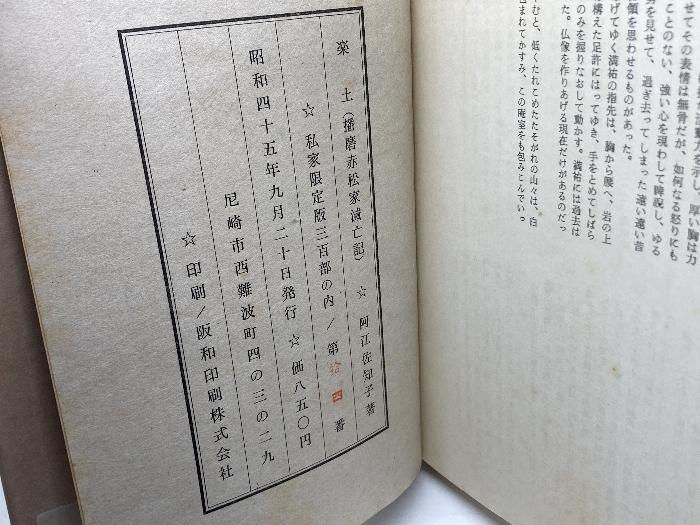 せてその表情は無骨だが、如何なる怒りにも
ことのない、強い心を現わして睥睨し、ゆる
を見せて、過ぎ去ってしまった遠い遠い昔
領を思わせるものがあった。
げてゆく満祐の指先は、胸から腰へ、岩の上
構えた足許にはってゆき、手をとめてしばら
のみを握りなおして動かす。満祐には過去は
た。仏像を作りあげる現在だけがあるのだっ
やむと、低くたれこめたたそがれの山々は、白
包まれてかすみ、この庵室をも包みこんでいっ
楽土(播磨赤松家滅亡記) ☆ 阿江佐知子著
☆ 私家限定版三百部の内/第拾四番
昭和四十五年九月二十日発行 ☆ 価八五〇円
尼崎市西難波町四の三の二九
☆ 印刷/阪和印刷株式会社